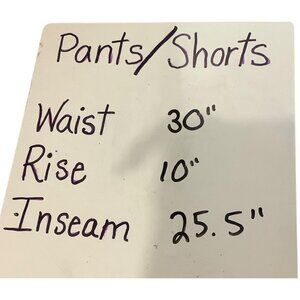 Pants/Shorts
Waist 30"
Rise 10"
Inseam 25.5"